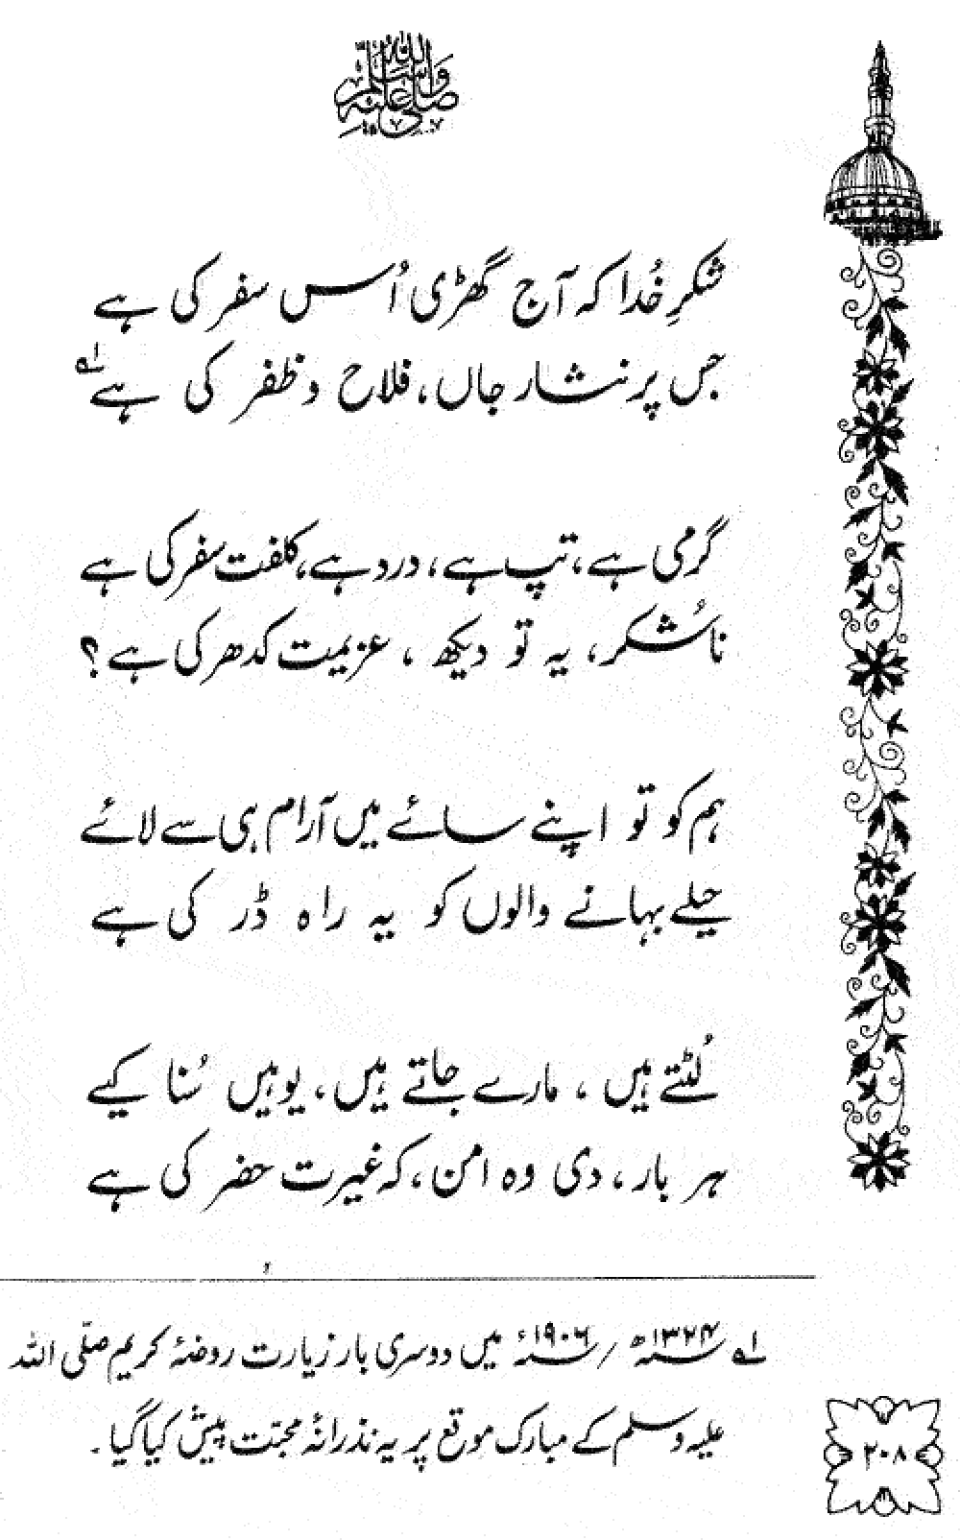 صلی اللہ علیہ وسلم
شکرِ خُدا کہ آج گھڑی اُس سفر کی ہے
جس پر نثار جاں، فلاح و ظفر کی ہے ۱؎
گرمی ہے، تپ ہے، درد ہے، کلفت سفر کی ہے
ناشُکر، یہ تو دیکھ، عزیمت کدھر کی ہے؟
ہم کو تو اپنے سائے میں آرام ہی سے لائے
حیلے بہانے والوں کو یہ راہ ڈر کی ہے
لُٹتے ہیں، مارے جاتے ہیں، یوہیں سُنا کیے
ہر بار، دی وہ امن، کہ غیرت حضر کی ہے
۱؎ ۱۳۲۴ھ / ۱۹۰۶ء میں دوسری بار زیارت روضۂ کریم صلّی اللہ
علیہ وسلم کے مبارک موقع پر یہ نذرانۂ محبّت پیش کیا گیا۔
۲۰۸